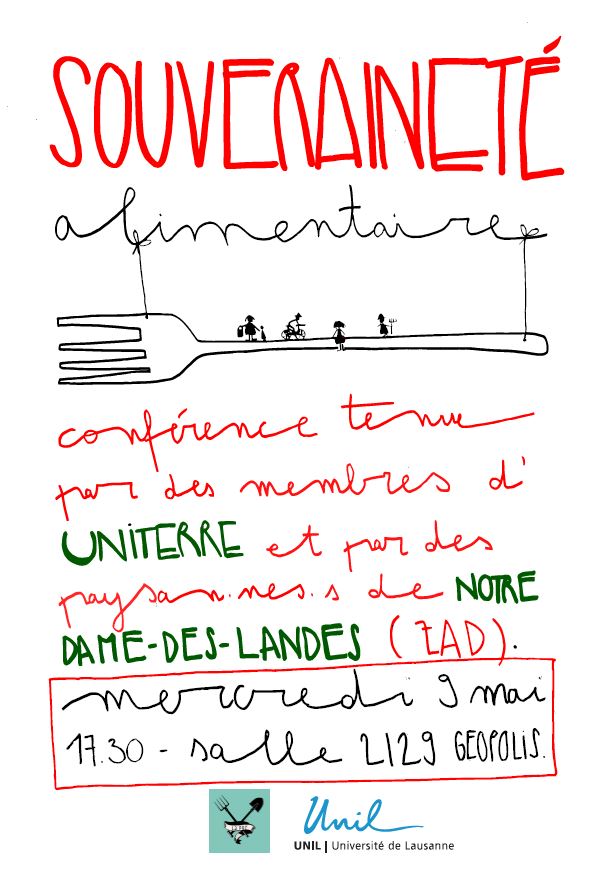 SOUVERAINETÉ
alimentaire
conférence tenue
par des membres d'
UNITERRE et par des
paysan.nes.s de NOTRE
DAME-DES-LANDES (ZAD).
mercredi 9 mai
17.30 - salle 2129 GEOPOLIS.
Unil
UNIL | Université de Lausanne